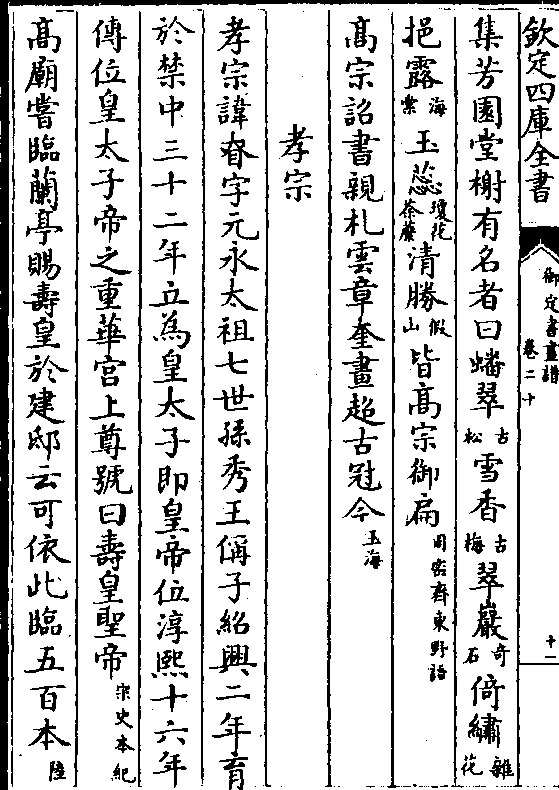 欽定四庫全書
御定書畫譜
卷二十
十一
集芳園堂榭有名者曰蟠翠古松雪香古梅翠巖奇石倚繡雜花
挹露海棠玉蕊瓊花荼蘼清勝假山皆髙宗御扁周密齊東野語
髙宗詔書親札雲章奎畫超古冠今玉海
孝宗
孝宗諱眘字元永太祖七世孫秀王偁子紹興二年育
於禁中三十二年立為皇太子即皇帝位淳熙十六年
傳位皇太子帝之重華宮上尊號曰壽皇聖帝宋史本紀
髙廟嘗臨蘭亭賜壽皇於建邸云可依此臨五百本陸